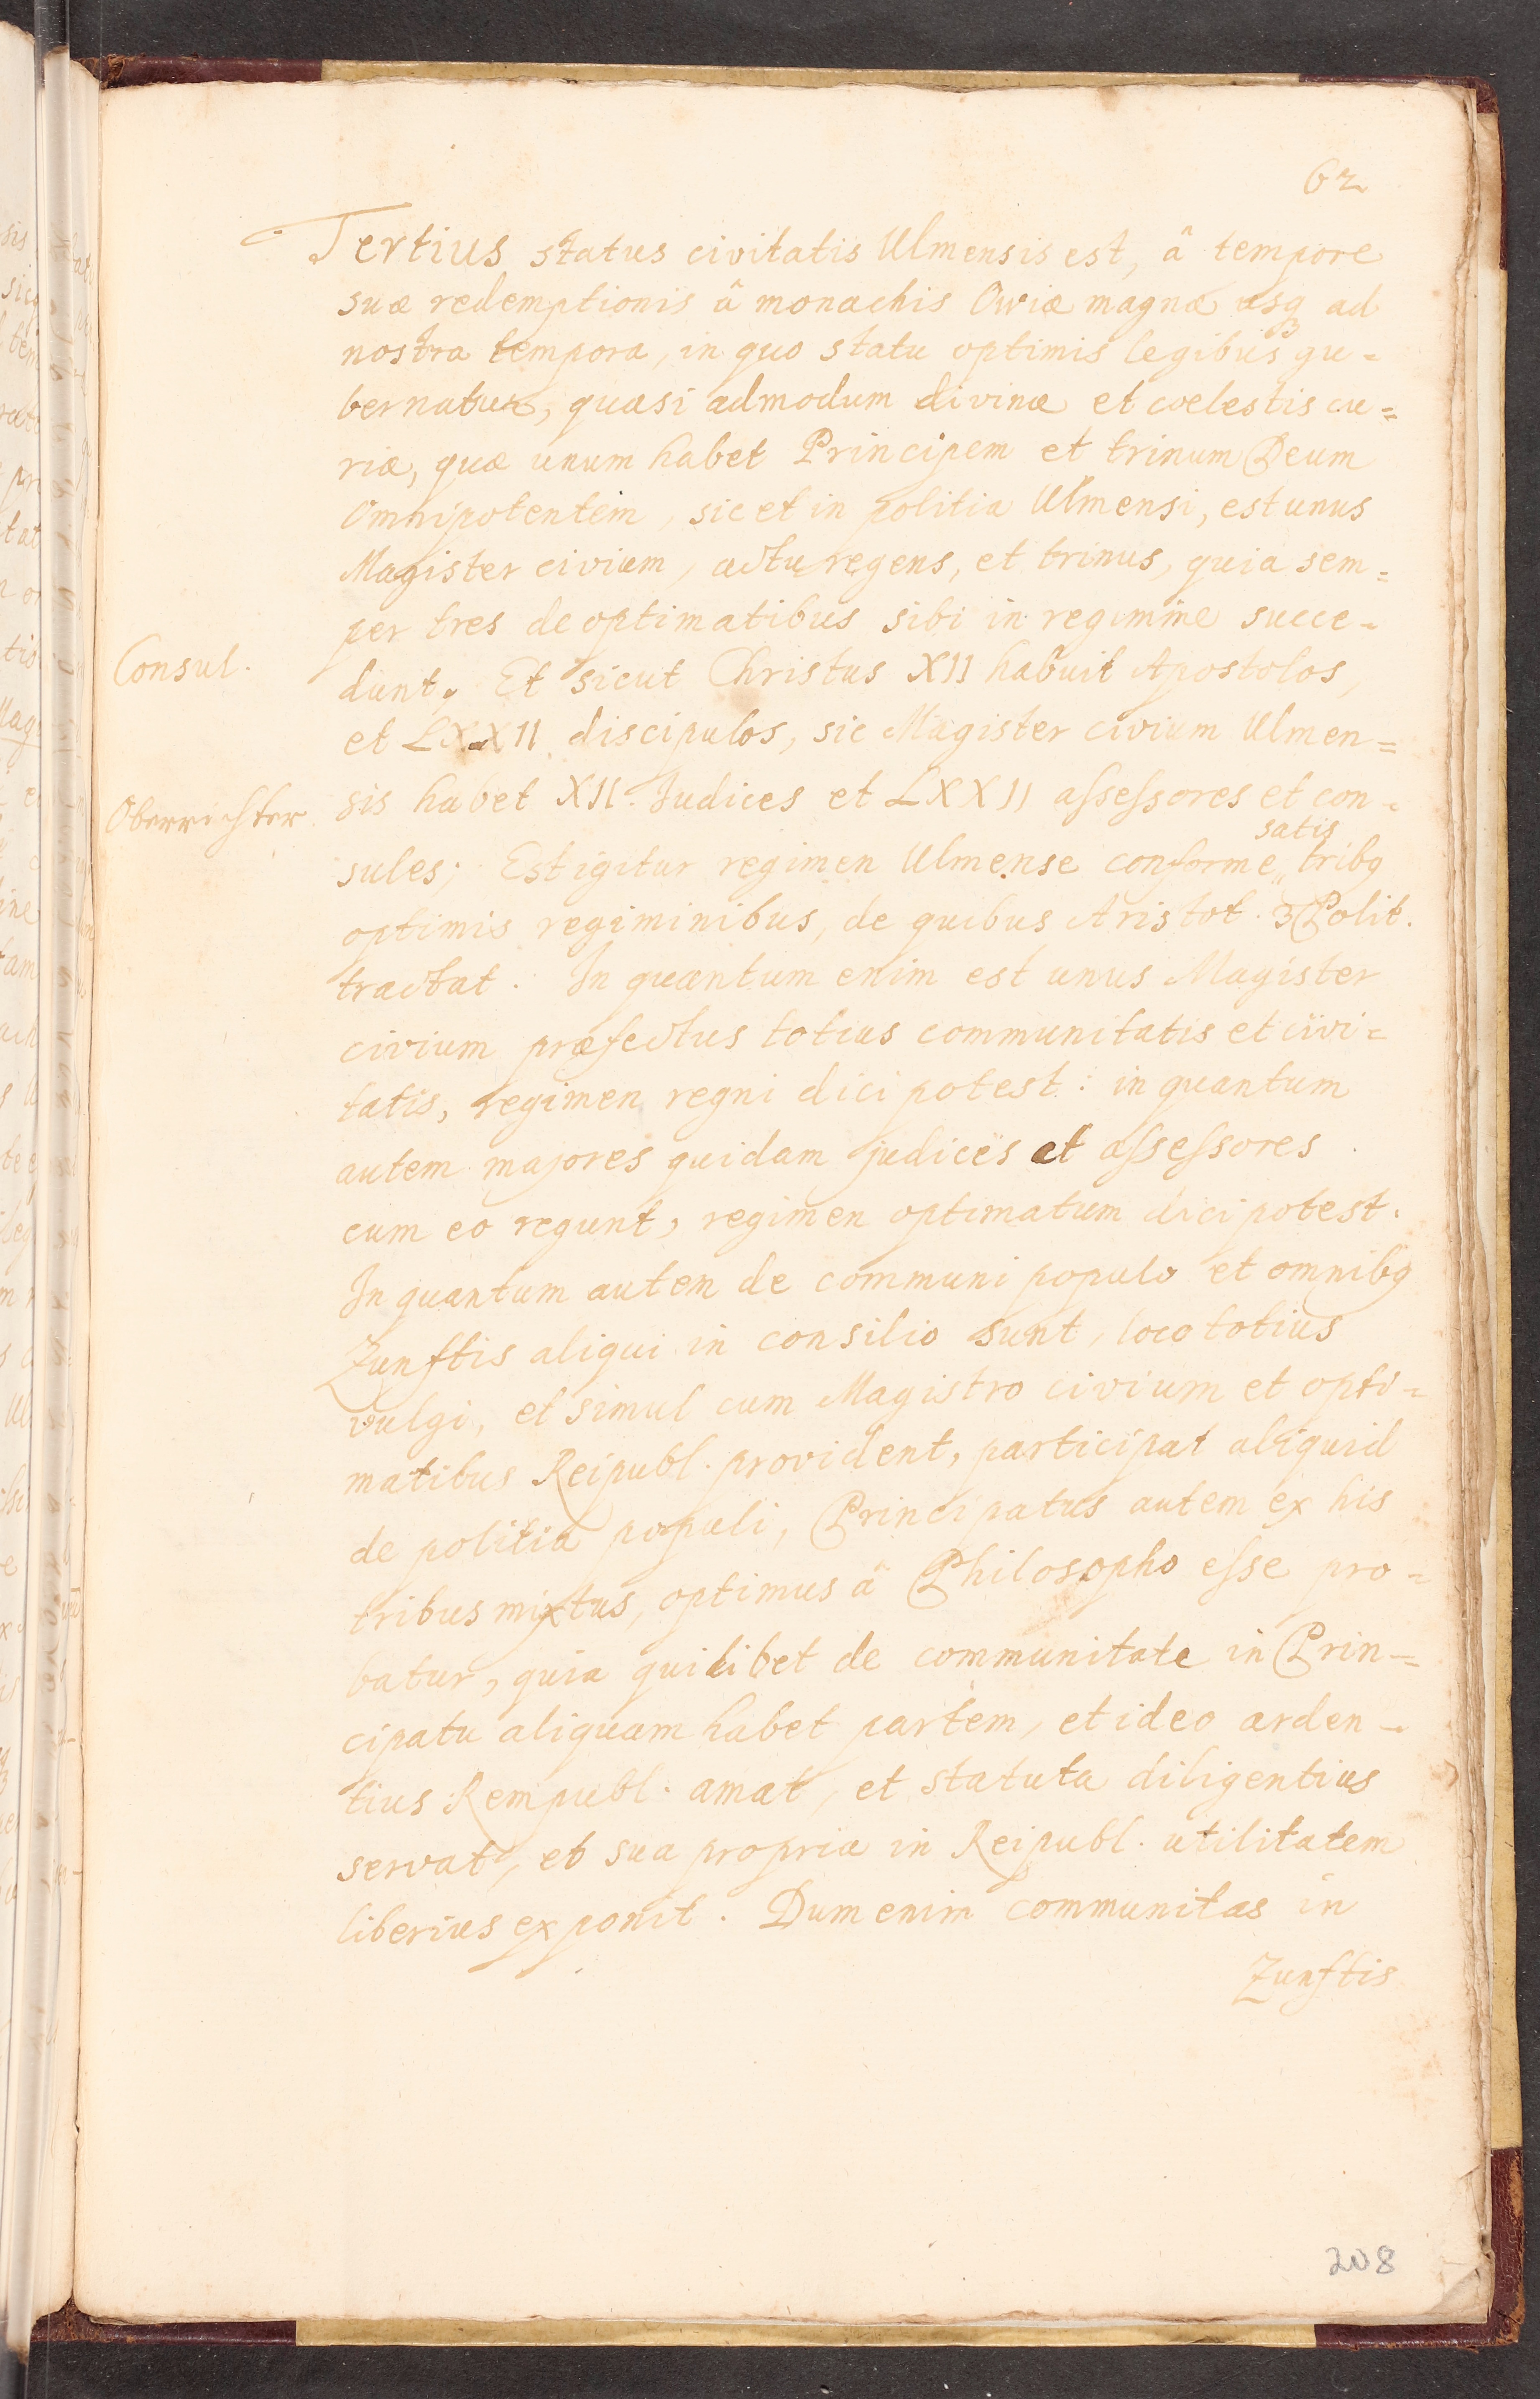 62
Tertius status civitatis Ulmensis est, â tempore
suæ redemptionis â monachis Owiæ magnæ usq3 ad
nostra tempora, in quo statu optimis legibus gu=
bernatur, quasi admodum divinæ et coelestis cu=
riæ, quæ unum habet Principem et trinum Deum
Omnipotentem, sic et in politia Ulmensi, est unus
Magister civium, actu regens, et trinus, quia sem=
per tres de optimatibus sibi in regimine succe-
Consul.
dunt. Et sicut Christus XII habuit Apostolos,
et LXXII discipulos, sic Magister civium Ulmen=
Oberrichter
sis habet XII. Judices et LXXII assessores et con-
satis
sules; Est igitur regimen Ulmense conforme,, tribq
optimis regiminibus, de quibus Aristot. 3 Polit.
tractat. In quantum enim est unus Magister
civium præfectus totius communitatis et civi=
tatis, regimen regni dici potest: in quantum
autem majores quidam judices et assessores
cum eo regunt, regimen optimatum dici potest.
In quantum autem de communi populo et omnibq
Zunftis aliqui in consilio sunt, loco totius
vulgi, et simul cum Magistro civium et opti=
matibus Reipubl. provident, participat aliquid
de politia populi, Principatus autem ex his
tribus mixtus, optimus â Philosopho esse pro=
batur, quia quilibet de communitate in Prin=
cipatu aliquam habet partem, et ideo arden-
tius Rempubl. amat, et statuta diligentius
servat, et sua propria in Reipubl. utilitatem
liberius exponit. Dum enim communitas in
Zunftis
208